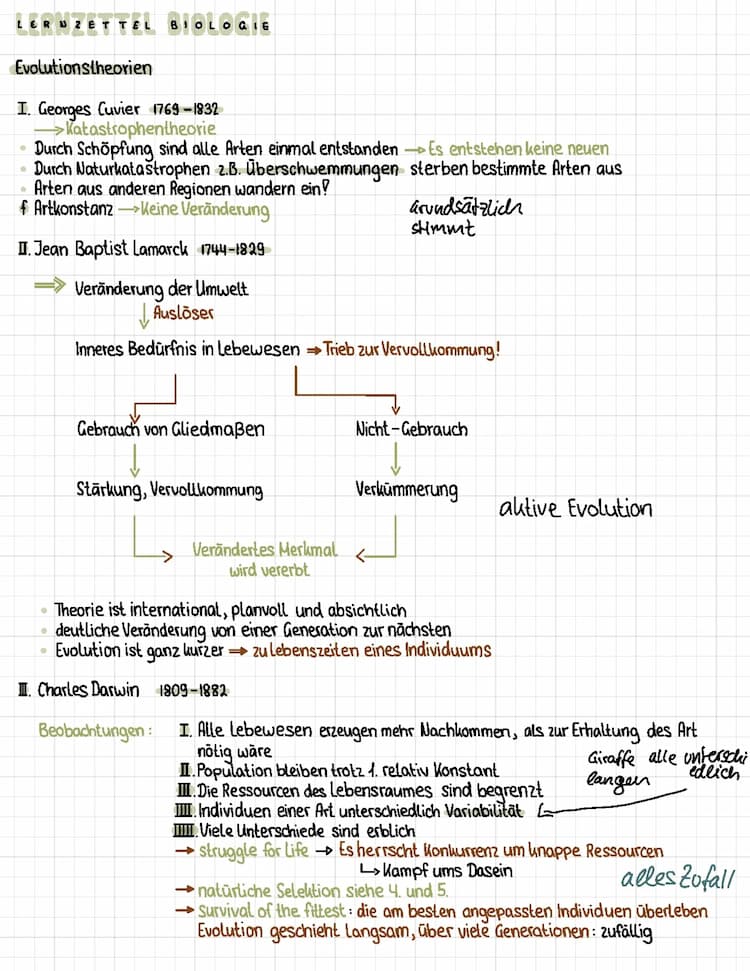 LERNZETTEL BIOLOGIE
Evolutionstheorien
I. Georges Cuvier 1769-1832
→ Katastrophentheorie
• Durch Schöpfung sind alle Arten einmal entstanden → Es entstehen keine neuen
• Durch Naturkatastrophen z.B. Überschwemmungen sterben bestimmte Arten aus
• Arten aus anderen Regionen wandern ein?
f Artkonstanz → Keine Veränderung
Grundsätzlich
stimmt
II. Jean Baptist Lamarck 1744-1829
⇒ Veränderung der Umwelt
↓ Auslöser
Inneres Bedürfnis in Lebewesen ⇒ Trieb zur Vervollkommung!
Gebrauch von Gliedmaßen Nicht-Gebrauch
Stärkung, Vervollkommung Verkümmerung
aktive Evolution
Verändertes Merkmal
wird vererbt
• Theorie ist international, planvoll und absichtlich
• deutliche Veränderung von einer Generation zur nächsten
• Evolution ist ganz kurzer ⇒ zu lebenszeiten eines Individuums
III. Charles Darwin 1809-1882
Beobachtungen: I. Alle Lebewesen erzeugen mehr Nachkommen, als zur Erhaltung des Art
nötig wäre
Giraffe alle unterschi
edlich
langen
II. Population bleiben trotz 1. relativ Konstant
III. Die Ressourcen des Lebensraumes sind begrenzt
IIII. Individuen einer Art unterschiedlich Variabilität
IIIII. Viele Unterschiede sind erblich
→ struggle for life → Es herrscht Konkurrenz um knappe Ressourcen
↳ Kampf ums Dasein
alles Zufall
→ natürliche Selektion siehe 4. und 5.
→ Survival of the fittest: die am besten angepassten Individuen überleben
Evolution geschieht langsam, über viele Generationen: zufällig